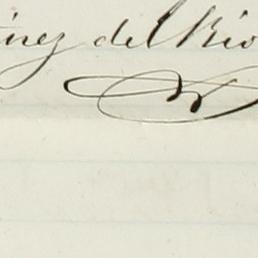 inez del Rio